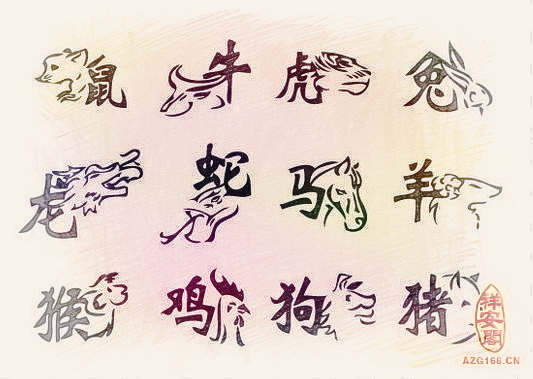 鼠 牛 虎 兔
龙 蛇 马 羊
猴 鸡 狗 猪
祥安閣
AZG168.CN